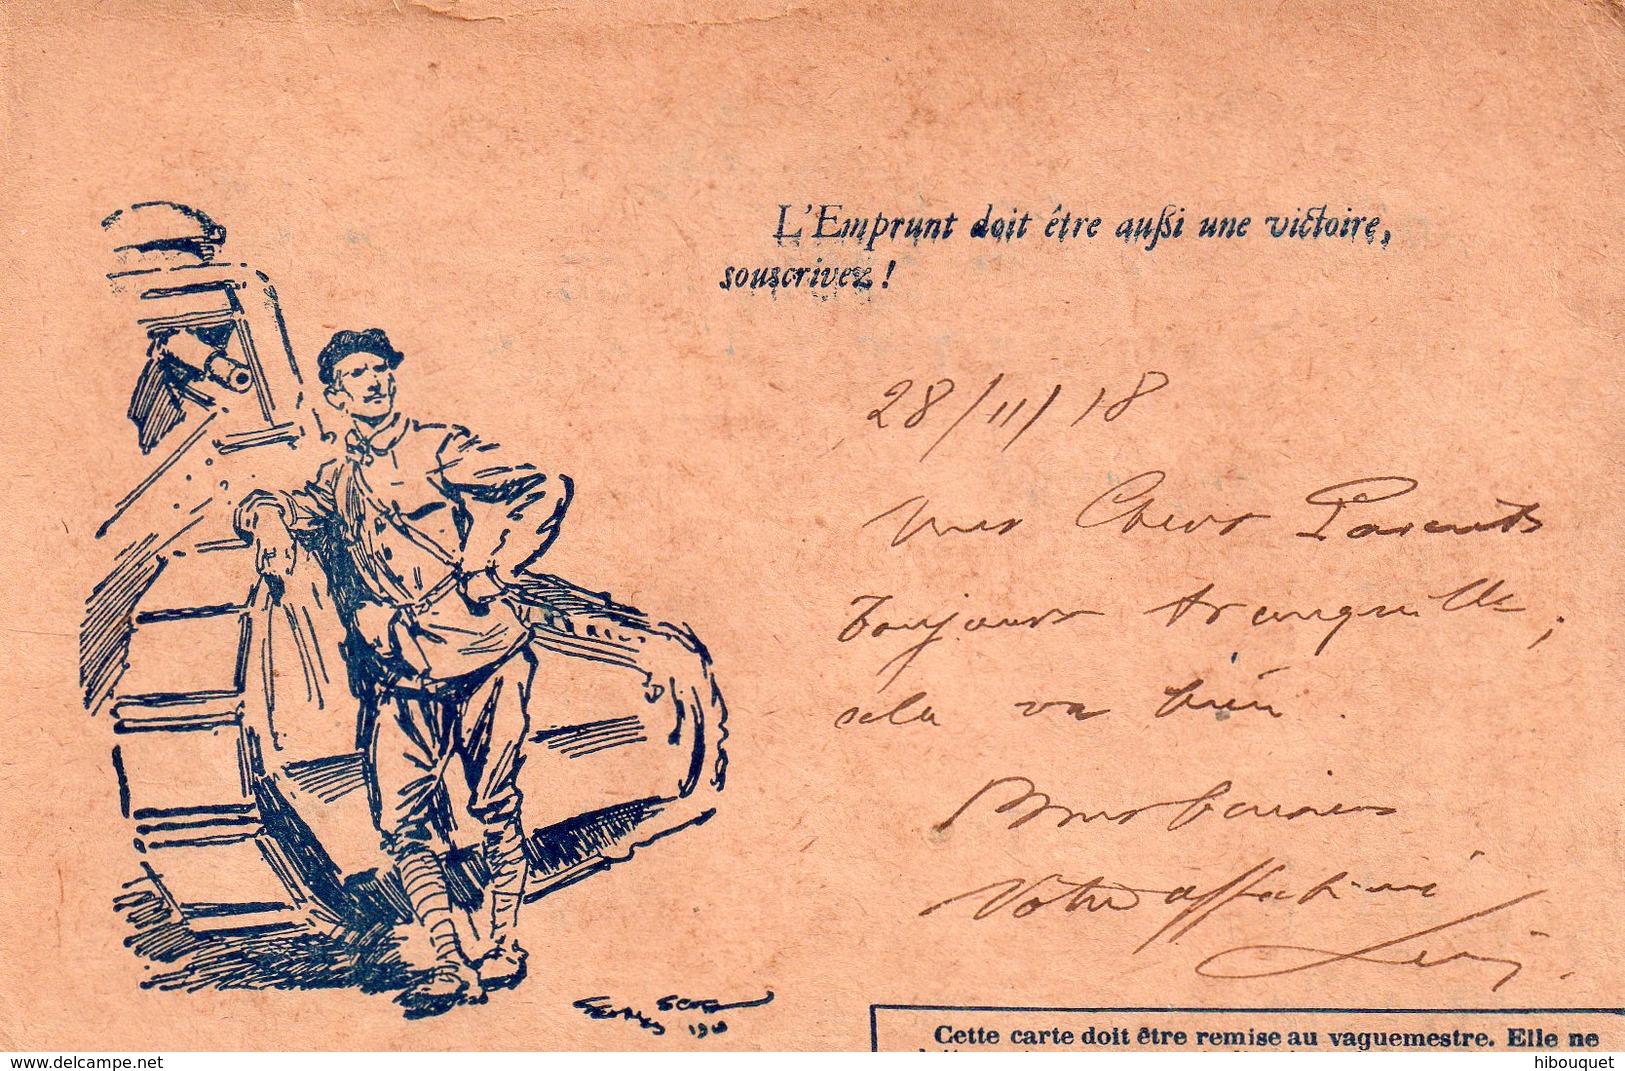 L'Emprunt doit être aussi une victoire,
souscrivez !
28/11/18
Mes Chers Parents
Toujours tranquille,
cela va bien.
Bons baisers
Votre affectionné
Georges Scott
1918
Cette carte doit être remise au vaguemestre. Elle ne
www.delcampe.net
hibouquet